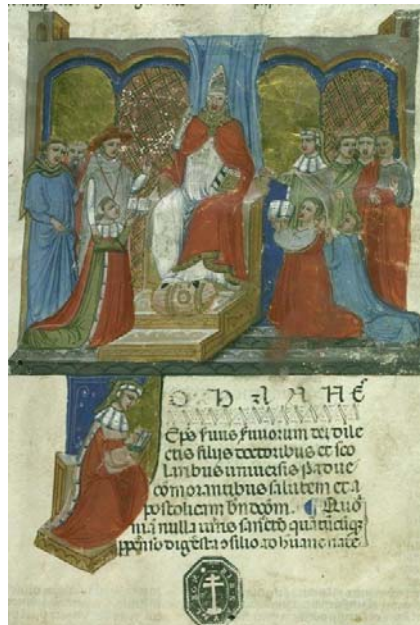 O H A N E
Eps seruus seruorum dei dile
ctis filijs doctoribus et sco
laribus uniuersis padue
comorantibus salutem et a
postolicam bndcom. Quo
nia nulla iuris sanctio quatucuq
ppenso digesta osilio ad humane natu